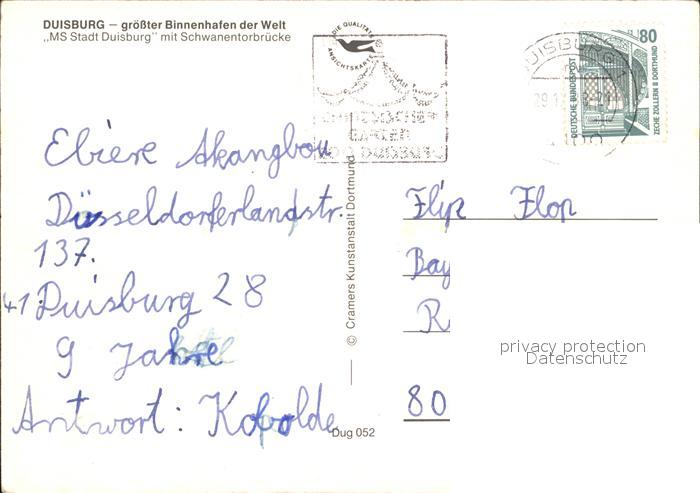 DUISBURG – größter Binnenhafen der Welt
„MS Stadt Duisburg" mit Schwanentorbrücke
DIE QUALITÄTS
ANSICHTSKARTE
CHINESISCHER
GARTEN
ZOO DUISBURG
DUISBURG
80
DEUTSCHE BUNDESPOST
ZECHE ZOLLERN II DORTMUND
Ebiere Akangbou
Düsseldorferlandstr.
137.
41 Duisburg 28
9 Jahre
Antwort: Kobolde
© Cramers Kunstanstalt Dortmund
Dug 052
Flip Flop
Bay
R
80
privacy protection
Datenschutz